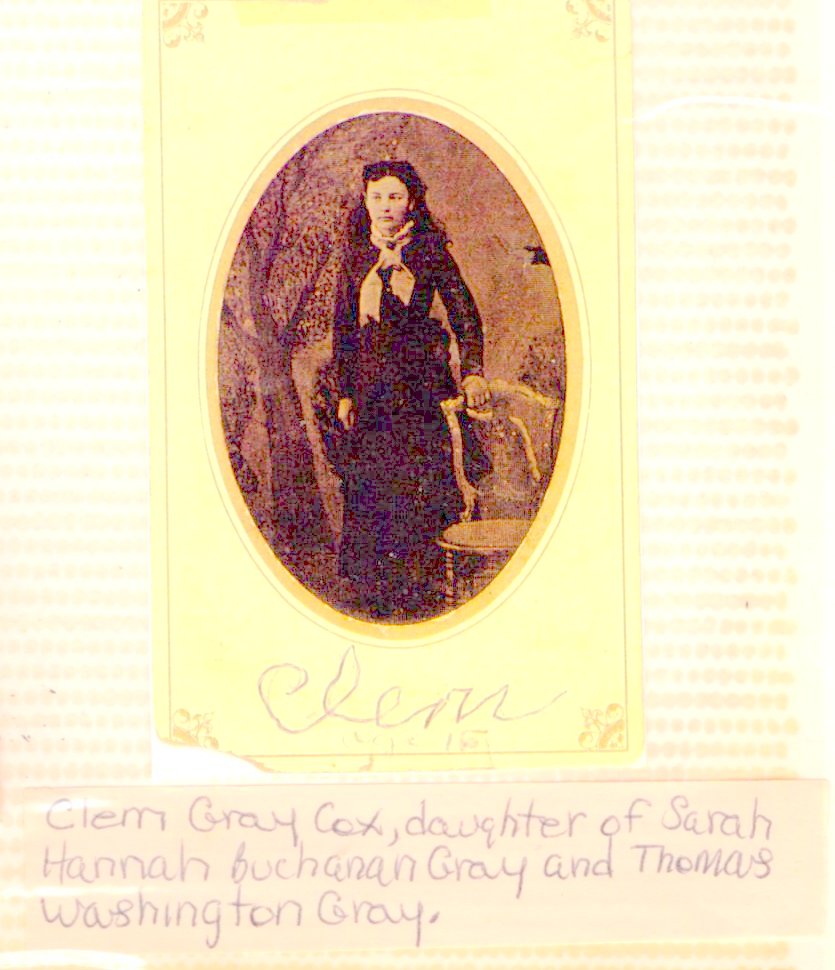 Clem
age 15
Clem Gray Cox, daughter of Sarah
Hannah Buchanan Gray and Thomas
Washington Gray.